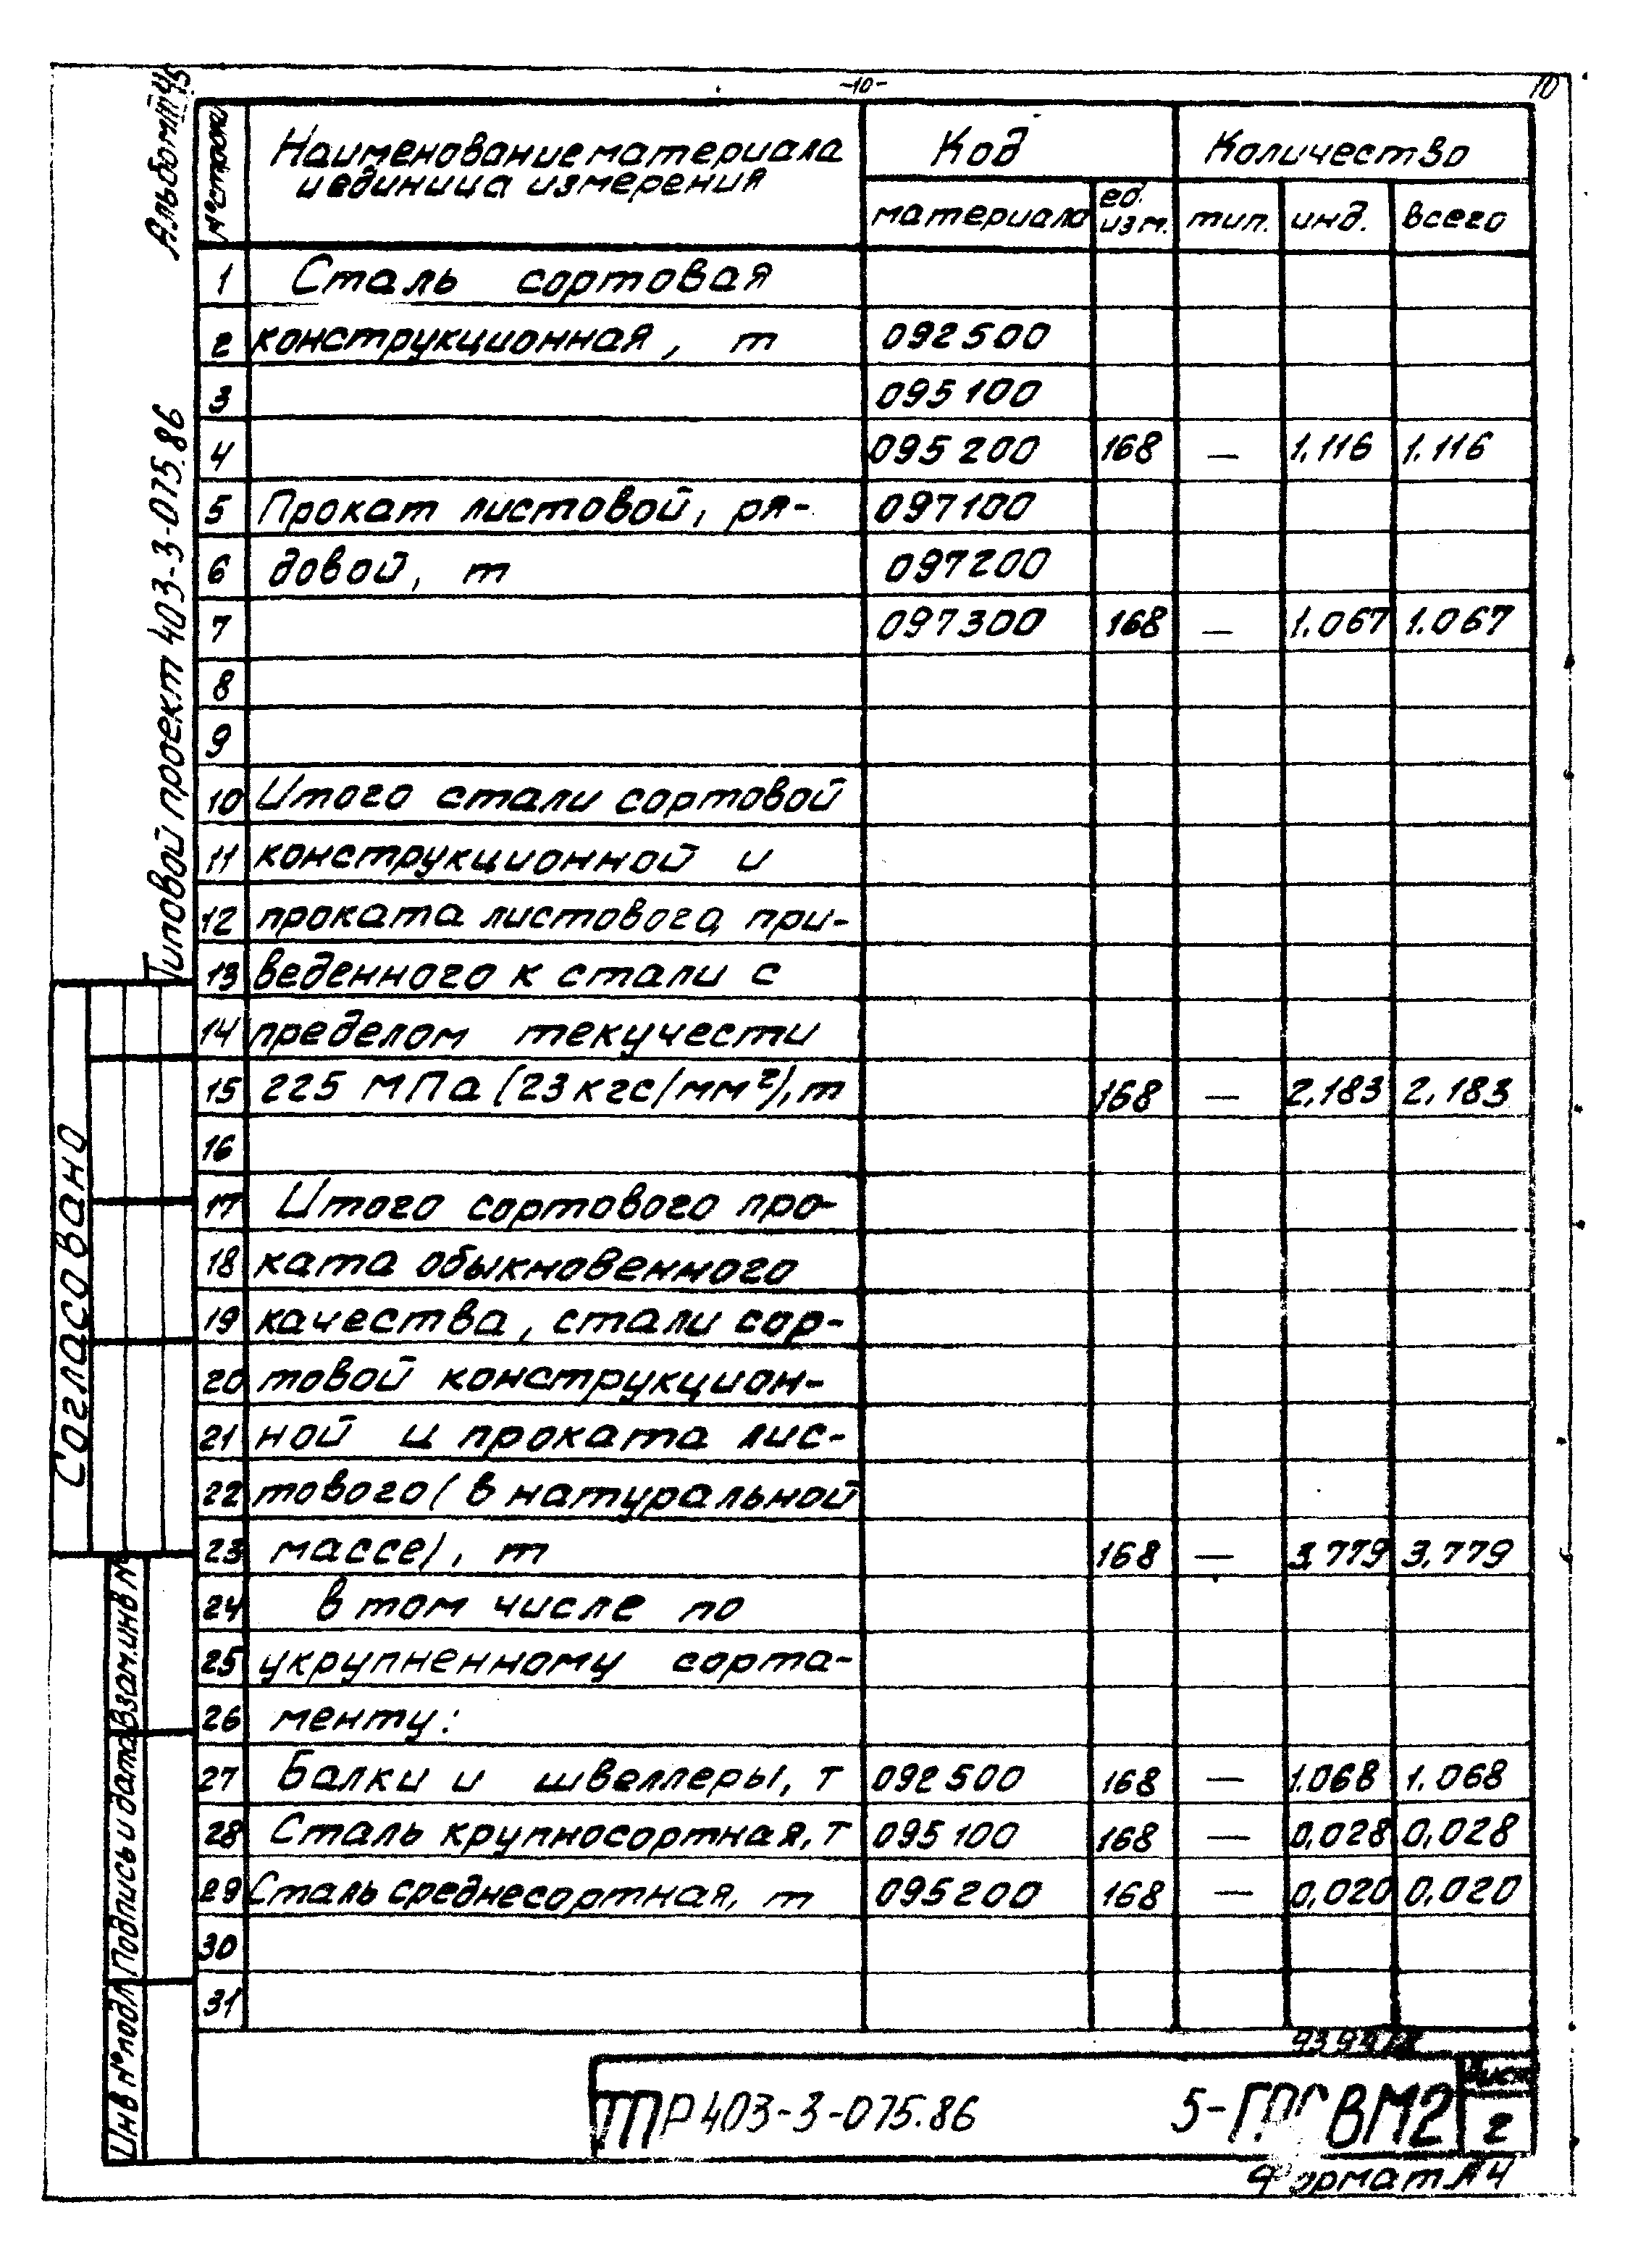 -10-
10
Альбом
Типовой проект 403-3-075.86
№ строки Наименование материала и единица измерения Код Количество
материала ед. изм. тип. инд. всего
1 Сталь сортовая
2 конструкционная, т 092500
3 095100
4 095200 168 — 1.116 1.116
5 Прокат листовой, ря- 097100
6 довой, т 097200
7 097300 168 — 1.067 1.067
8
9
10 Итого стали сортовой
11 конструкционной и
12 проката листового, при-
13 веденного к стали с
14 пределом текучести
15 225 МПа (23 кгс/мм²), т 168 — 2,183 2,183
16
17 Итого сортового про-
18 ката обыкновенного
19 качества, стали сор-
20 товой конструкцион-
21 ной и проката лис-
22 тового (в натуральной
23 массе), т 168 — 3,779 3,779
24 в том числе по
25 укрупненному сорта-
26 менту:
27 Балки и швеллеры, т 092500 168 — 1.068 1.068
28 Сталь крупносортная, т 095100 168 — 0,028 0,028
29 Сталь среднесортная, т 095200 168 — 0,020 0,020
30
31
Согласовано
Взам.инв №
Подпись и дата
Инв № подл
ТПР 403-3-075.86 ВМ2 Лист
2
Формат А4